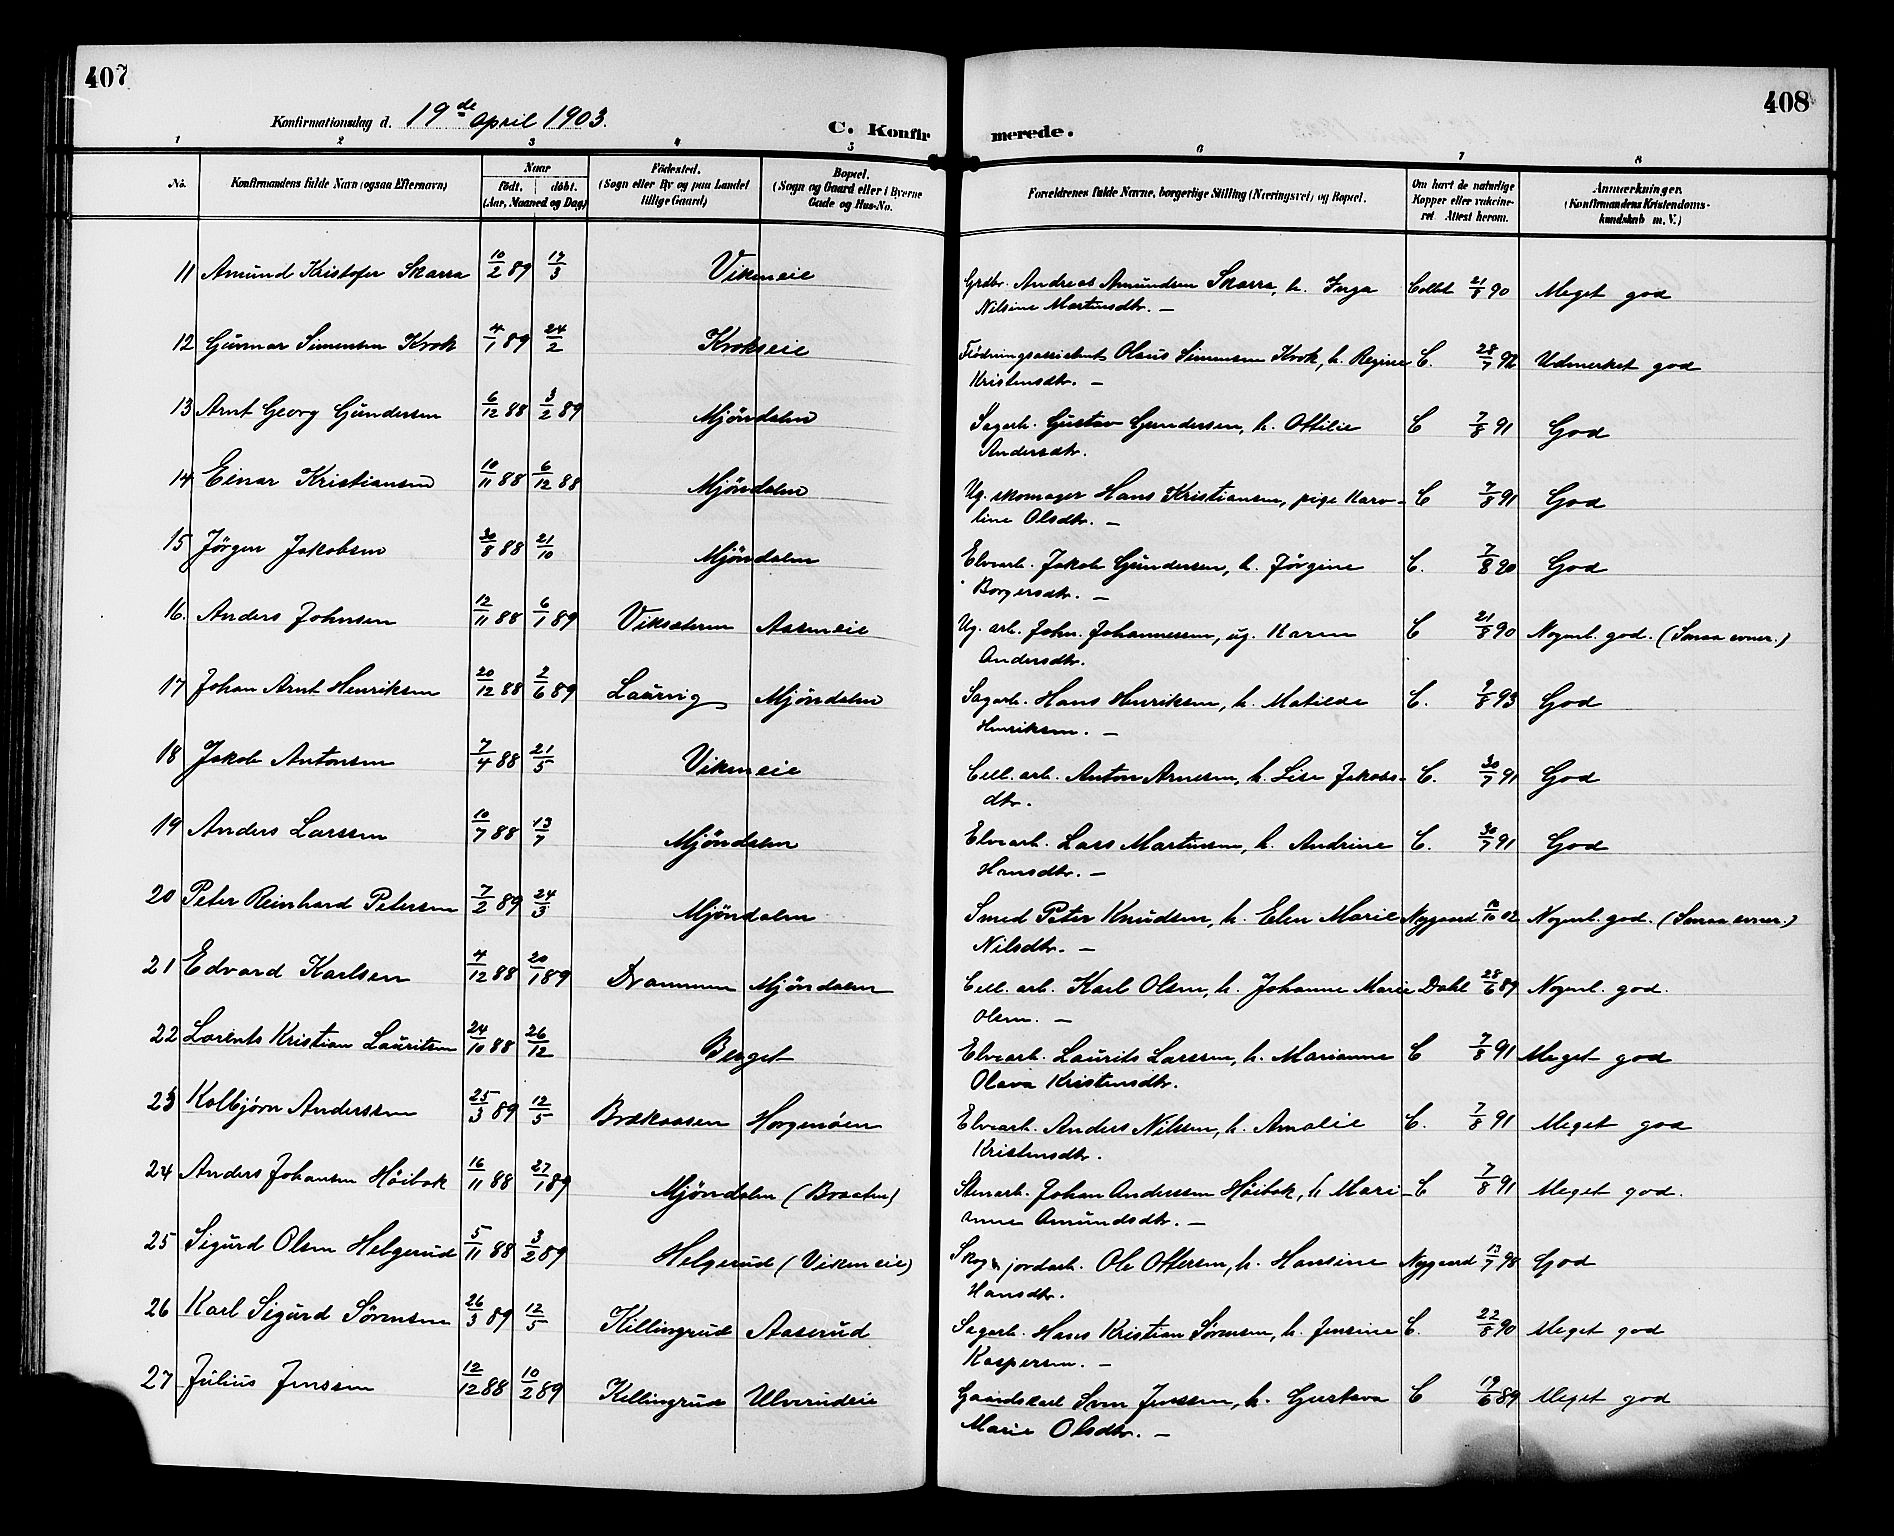 407
408
Konfirmationsdag d. 19de April 1903.
C. Konfirmerede.
1 2 3 4 5 6 7 8
No. Konfirmandens fulde Navn (ogsaa Efternavn) Naar født. døbt. (Aar, Maaned og Dag) Fødested. (Sogn eller By og paa Landet tillige Gaard) Bopæl. (Sogn og Gaard eller i Byerne Gade og Hus-No. Forældrenes fulde Navne, borgerlige Stilling (Næringsvei) og Bopæl. Om havt de naturlige Kopper eller vakcineret Attest herom. Anmærkninger. (Konfirmandens Kristendomskundskab m. V.)
11 Amund Kristofer Skarra 10/2 89 17/3 Vikeneie Grdbr. Andreas Amundsen Skarra, h. Inga Colbt 21/8 90 Meget god
Nilsine Martinsdtr. –
12 Gunnar Simensen Krok 4/1 89 24/2 Krokseie Flødningsassistent Olaus Simensen Krok, h. Regine C. 28/7 92 Udmerket god
Kristensdtr. –
13 Arnt Georg Gundersen 6/12 88 3/2 89 Mjöndalen Sagarb. Gustav Gundersen, h. Ottilie C 7/8 91 God
Andersdtr.
14 Einar Kristiansen 10/11 88 6/12 88 Mjöndalen Ug. skomager Hans Kristiansen, pige Karo- C 7/8 91 God
line Olsdtr. –
15 Jørgen Jakobsen 30/8 88 21/10 Mjöndalen Elvearb. Jakob Gundersen, h. Jørgine C. 7/8 90 God
Borgersdtr. –
16. Anders Johnsen 12/11 88 6/1 89 Viksæteren Aaseneie Ug. arb. John Johannessen, ug. Karen C 21/8 90 Nogenl. god. (Smaa evner.)
Andersdtr.
17 Johan Arnt Henriksen 20/12 88 2/6 89 Laurvig Mjöndalen Sagarb. Hans Henriksen, h. Matilde C. 9/8 93 God
Henriksen. –
18 Jakob Antonsen 7/4 88 21/5 Vikeneie Cell. arb. Anton Arnesen, h. Lise Jakobs- C. 30/7 91 God
dtr.
19 Anders Larssen 10/7 88 13/7 Mjöndalen Elvearb. Lars Martinsen, h. Andrine C. 30/7 91 God
Hansdtr. –
20 Peter Reinhard Petersen 7/2 89 24/3 Mjöndalen Smed Peter Knudsen, h. Elen Marie Nygaard 02 Nogenl. god. (Smaa evner.)
Nilsdtr. –
21 Edvard Karlsen 4/12 88 20/1 89 Drammen Mjöndalen Cell. arb. Karl Olsen, h. Johanne Marie Dahl 28/6 89 Nogenl. god.
Olsen. –
22 Lorents Kristian Lauritsen 24/10 88 26/12 Berget Elvearb. Laurits Larssen, h. Marianne C 7/8 91 Meget god
Olava Kristensdtr.
23 Kolbjørn Anderssen 25/3 89 12/5 Brækaasen Horgenöen Elvearb. Anders Nilssen, h. Amalie C. 7/8 91 Meget god
Kristensdtr.
24 Anders Johansen Höibak 16/11 88 27/1 89 Mjöndalen (Braaten) Stenarb. Johan Anderssen Höibak, h Mari- C 7/8 91 Meget god.
anne Amundsdtr. –
25 Sigurd Olsen Helgerud 5/11 88 3/2 89 Helgerud (Vikeneie) Skog & jordarb. Ole Ottersen, h. Hansine Nygaard 13/7 98 God
Hansdtr.
26 Karl Sigurd Sørensen 26/3 89 12/5 Killingrud Aaserud Sagarb. Hans Kristian Sørensen, h. Jensine C. 22/8 90 Meget god
Kaspersen. –
27 Julius Jenssen 12/12 88 10/2 89 Killingrud Ulverudeie Gaardskarl Sven Jenssen, h. Gustava C 19/6 89 Meget god
Marie Olsdtr. –